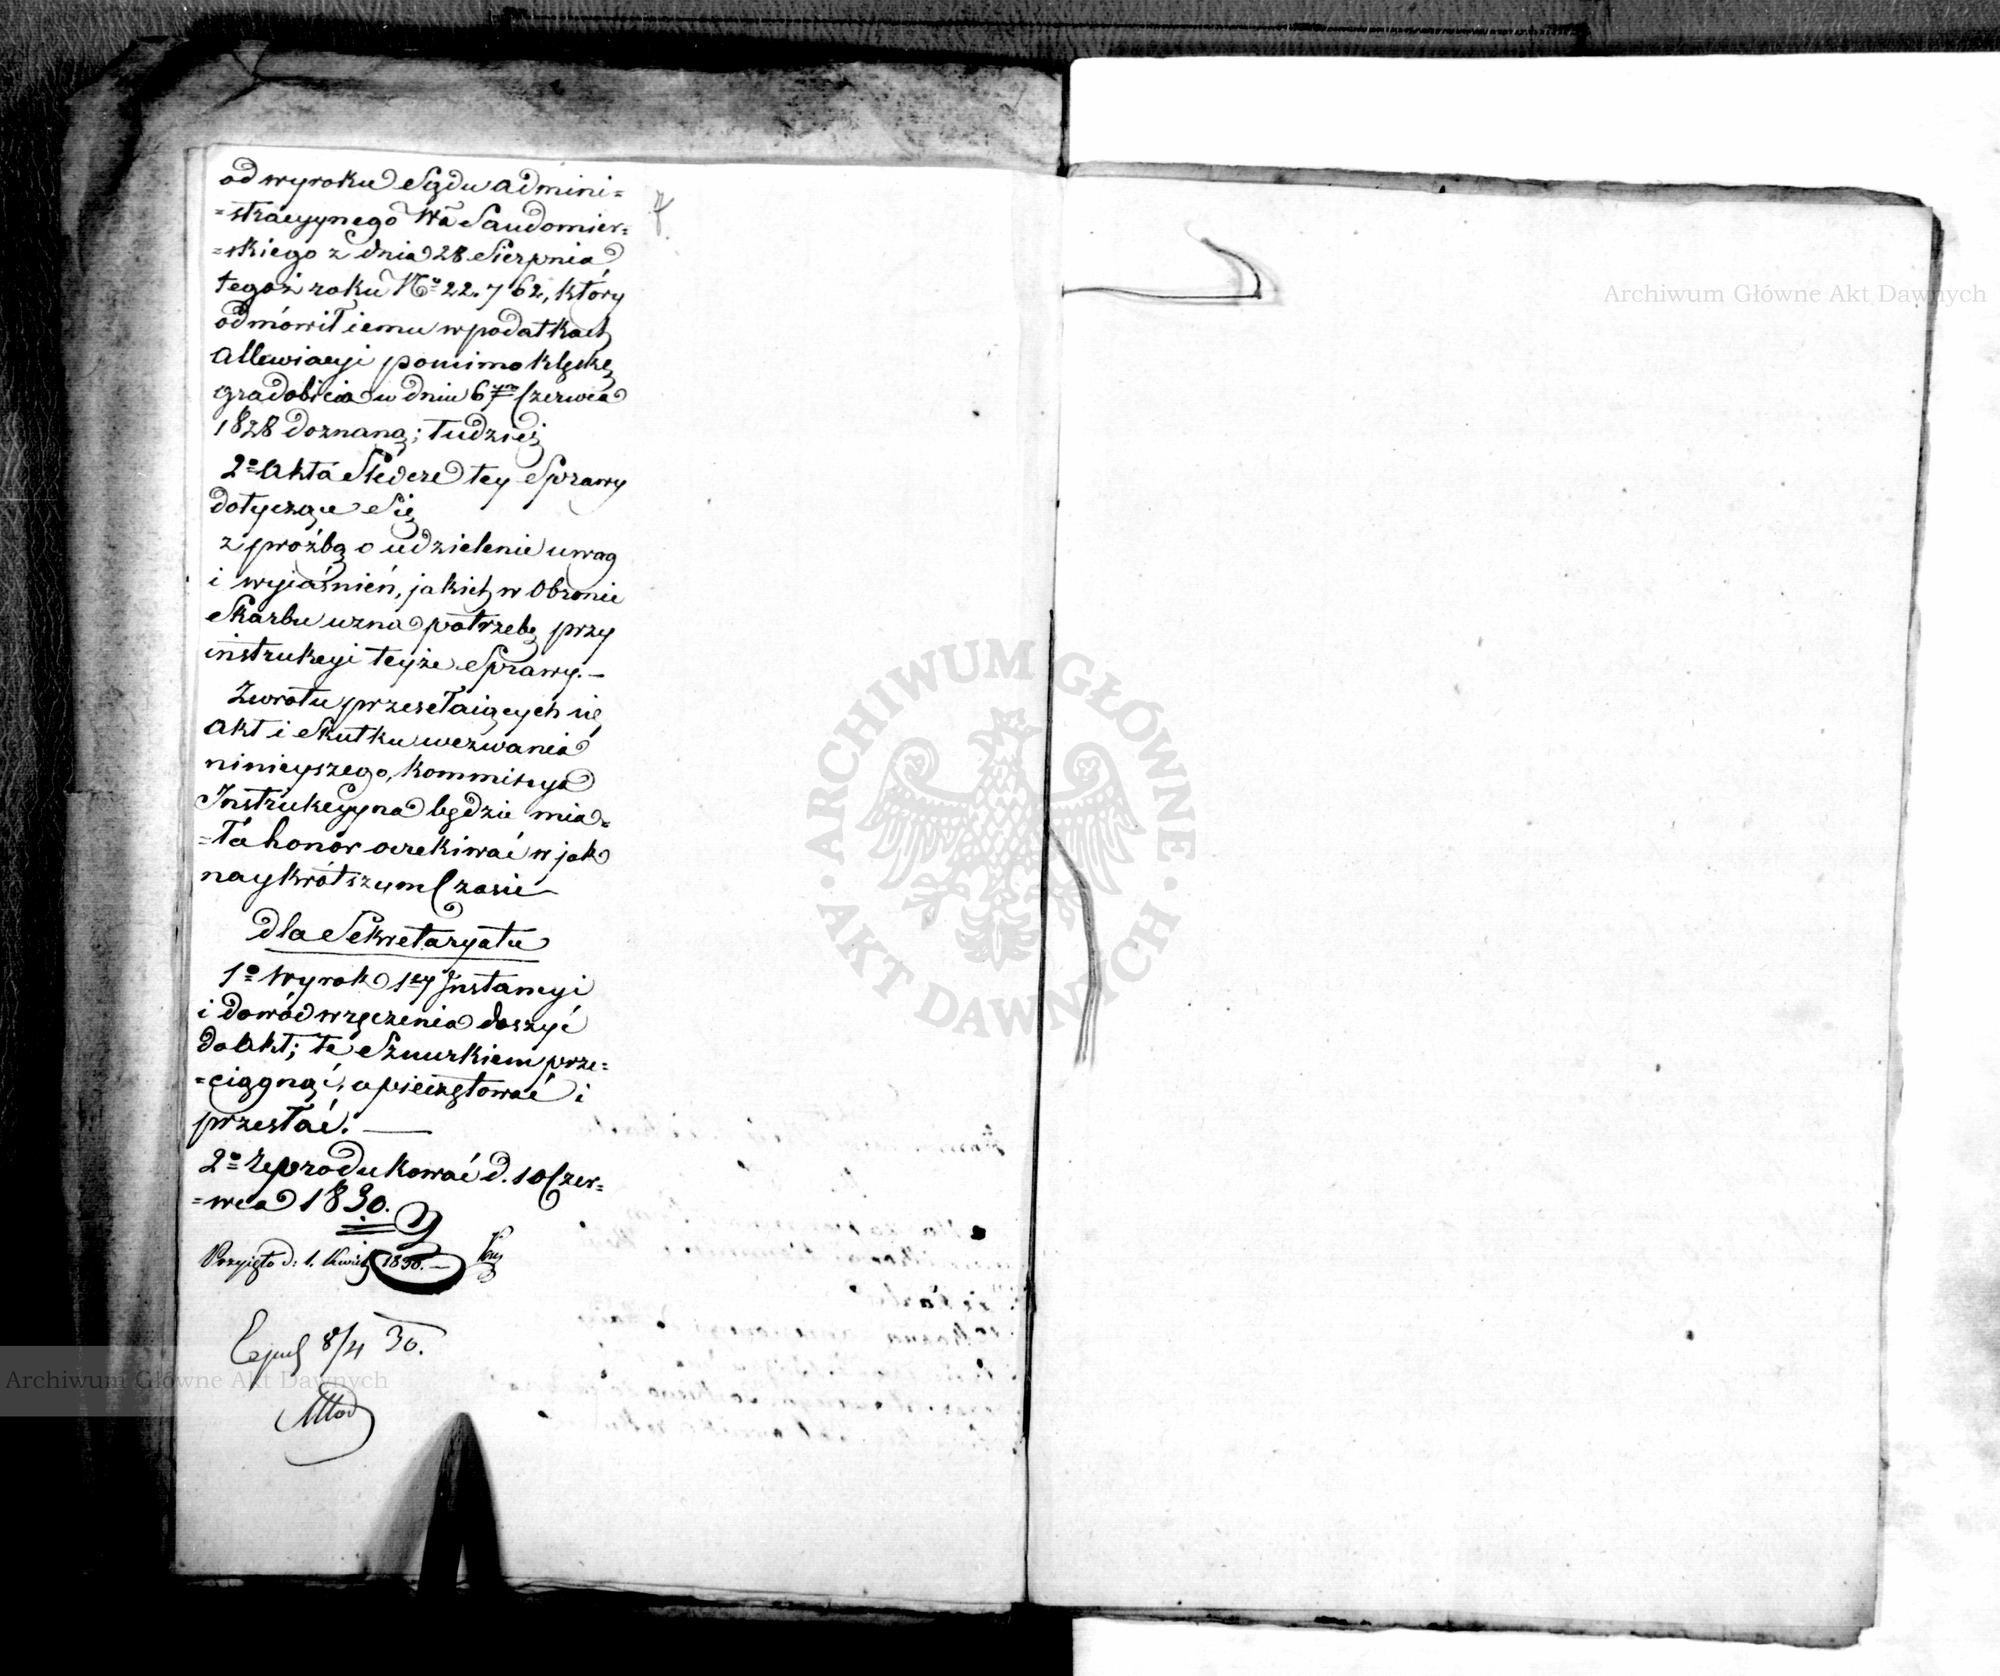 od wyroku Sądu admini=
=stracyynego Wa Sandomier=
=skiego z dnia 28 Sierpnia
tegoż roku No 22.762, który
odmówił iemu w podatkach
allewiacyi pomimo klęskę
gradobicia w dniu 6ym Czerwca
1828 doznaną; tudzież
2o Akta Śledcze tey Sprawy
dotyczące Się
z proźbą o udzielenie uwag
i wyiaśnień, jakich w Obronie
Skarbu uzna potrzebę przy
instrukcyi teyże Sprawy. —
Zwrotu przesełaiących się
Akt i Skutku wezwania
ninieyszego, Kommissya
Instrukcyyna będzie mia=
=ła honor oczekiwać w jak
naykrótszym Czasie —
dla Sekretaryatu
1o Wyrok 1ey Instancyi
i dowód wręczenia doszyć
do Akt; te Sznurkiem prze=
=ciągnąć, opieczętować i
przesłać. —
2o Reprodukować d. 10 Czer=
=wca 1830.
Przyięto d: 1. Kwiet 1830. —
8/4 30.
Archiwum Główne Akt Dawnych
ARCHIWUM GŁÓWNE
AKT DAWNYCH
Archiwum Główne Akt Dawnych